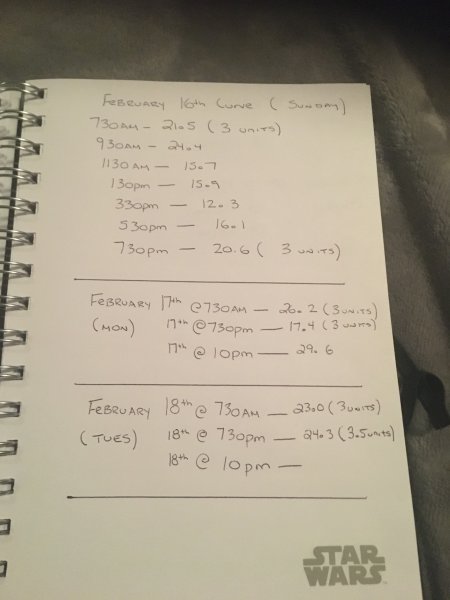 FEBRUARY 16th CURVE ( SUNDAY)
730AM - 21.5 ( 3 UNITS)
930AM - 24.4
1130AM - 15.7
130pm - 15.9
330pm - 12.3
530pm - 16.1
730pm - 20.6 ( 3 UNITS)
FEBRUARY 17th @ 730AM - 26.2 (3 UNITS)
(MON) 17th @ 730pm - 17.4 (3 UNITS)
17th @ 10pm - 29.6
FEBRUARY 18th @ 730AM - 23.0 (3 UNITS)
(TUES) 18th @ 730pm - 24.3 (3.5 UNITS)
18th @ 10pm -
STAR
WARS